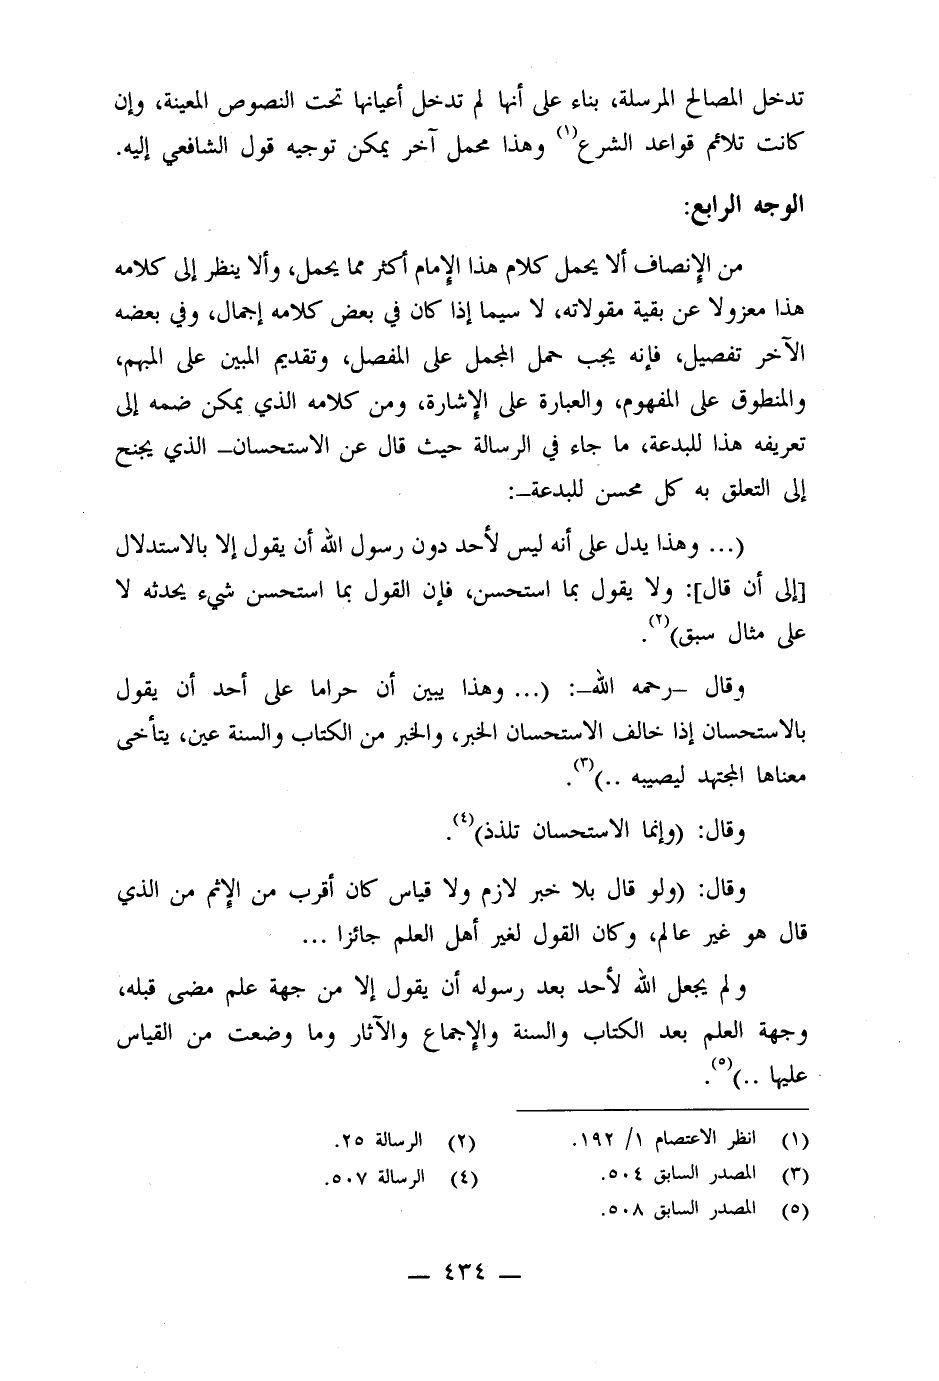 تدخل المصالح المرسلة، بناء على أنها لم تدخل أعيانها تحت النصوص المعينة، وإن
كانت تلائم قواعد الشرع(١) وهذا محمل آخر يمكن توجيه قول الشافعي إليه.
الوجه الرابع:
من الإنصاف ألا يحمل كلام هذا الإمام أكثر مما يحمل، وألا ينظر إلى كلامه
هذا معزولا عن بقية مقولاته، لا سيما إذا كان في بعض كلامه إجمال، وفي بعضه
الآخر تفصيل، فإنه يجب حمل المجمل على المفصل، وتقديم المبين على المبهم،
والمنطوق على المفهوم، والعبارة على الإشارة، ومن كلامه الذي يمكن ضمه إلى
تعريفه هذا للبدعة، ما جاء في الرسالة حيث قال عن الاستحسان_ الذي يجنح
إلى التعلق به كل محسن للبدعة_:
(... وهذا يدل على أنه ليس لأحد دون رسول الله أن يقول إلا بالاستدلال
[إلى أن قال]: ولا يقول بما استحسن، فإن القول بما استحسن شيء يحدثه لا
على مثال سبق)(٢).
وقال _رحمه الله_: (... وهذا يبين أن حراما على أحد أن يقول
بالاستحسان إذا خالف الاستحسان الخبر، والخبر من الكتاب والسنة عين، يتأخى
معناها المجتهد ليصيبه ..)(٣).
وقال: (وإنما الاستحسان تلذذ)(٤).
وقال: (ولو قال بلا خبر لازم ولا قياس كان أقرب من الإثم من الذي
قال هو غير عالم، وكان القول لغير أهل العلم جائزا ...
ولم يجعل الله لأحد بعد رسوله أن يقول إلا من جهة علم مضى قبله،
وجهة العلم بعد الكتاب والسنة والإجماع والآثار وما وضعت من القياس
عليها ..)(٥).
(١) انظر الاعتصام ١/ ١٩٢.
(٢) الرسالة ٢٥.
(٣) المصدر السابق ٥٠٤.
(٤) الرسالة ٥٠٧.
(٥) المصدر السابق ٥٠٨.
— ٤٣٤ —